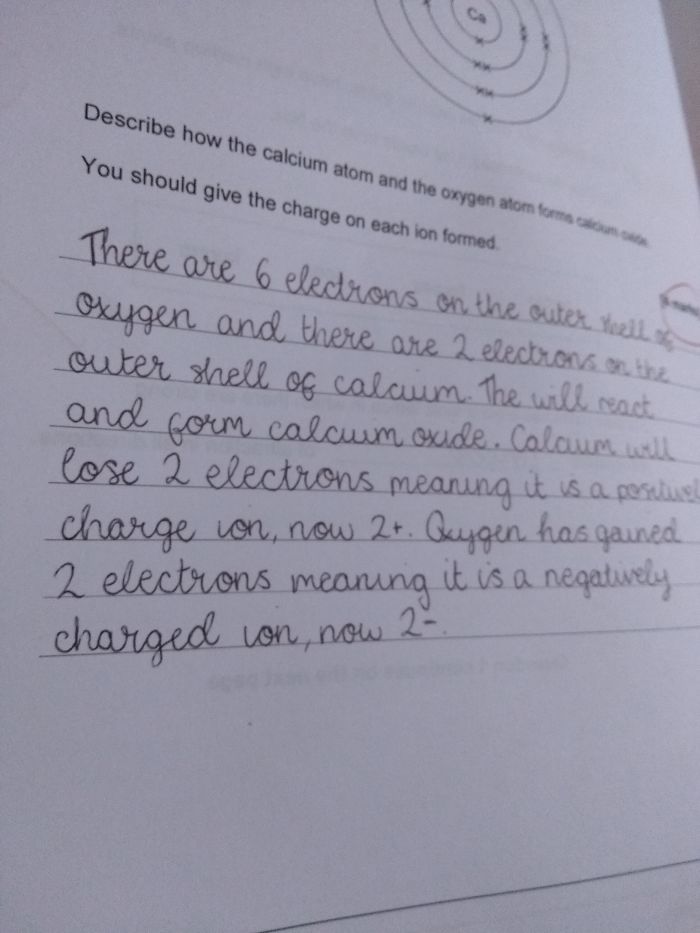 Ca
Describe how the calcium atom and the oxygen atom forms calcium oxide.
You should give the charge on each ion formed.
There are 6 electrons on the outer shell of
oxygen and there are 2 electrons on the
outer shell of calcium. The will react
and form calcium oxide. Calcium will
lose 2 electrons meaning it is a positivel
charge ion, now 2+. Oxygen has gained
2 electrons meaning it is a negatively
charged ion, now 2-.